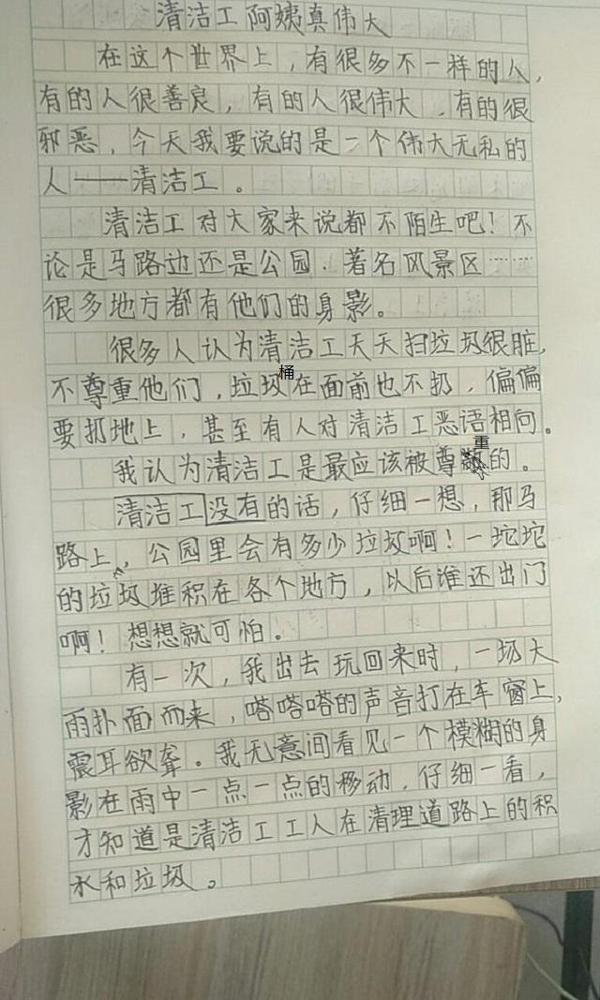 清洁工阿姨真伟大
在这个世界上，有很多不一样的人，
有的人很善良，有的人很伟大，有的很
邪恶，今天我要说的是一个伟大无私的
人——清洁工。
清洁工对大家来说都不陌生吧！不
论是马路边还是公园．著名风景区……
很多地方都有他们的身影。
很多人认为清洁工天天扫垃圾很脏，
不尊重他们，垃圾桶在面前也不扔，偏偏
要扔地上，甚至有人对清洁工恶语相向。
我认为清洁工是最应该被尊重的。
清洁工没有的话，仔细一想，那马
路上，公园里会有多少垃圾啊！一坨坨
的垃圾堆积在各个地方，以后谁还出门
啊！想想就可怕。
有一次，我出去玩回来时，一场大
雨扑面而来，嗒嗒嗒的声音打在车窗上，
震耳欲聋。我无意间看见一个模糊的身
影在雨中一点一点的移动，仔细一看，
才知道是清洁工工人在清理道路上的积
水和垃圾。